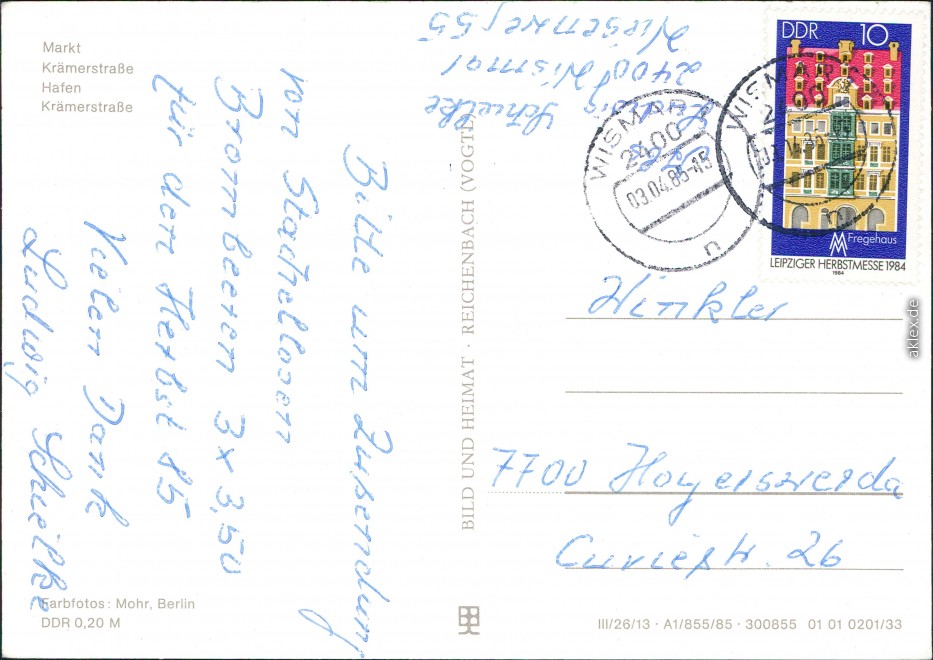 Markt
Krämerstraße
Hafen
Krämerstraße
Bitte um Zusendung
von Stachellosen
Brombeeren 3x 3,50
für den Herbst 85
Vielen Dank
Ludwig Schielke
Farbfotos: Mohr, Berlin
DDR 0,20 M
BILD UND HEIMAT · REICHENBACH (VOGTL
Ludwig Schielke
2400 Wismar
Wiesenweg 55
WISMAR
2400
03.04.85-15
n
WISMAR
2400
n
DDR 10
Fregehaus
LEIPZIGER HERBSTMESSE 1984
1984
Winkler
7700 Hoyerswerda
Curiestr. 26
III/26/13 · A1/855/85 · 300855 01 01 0201/33
aklex.de